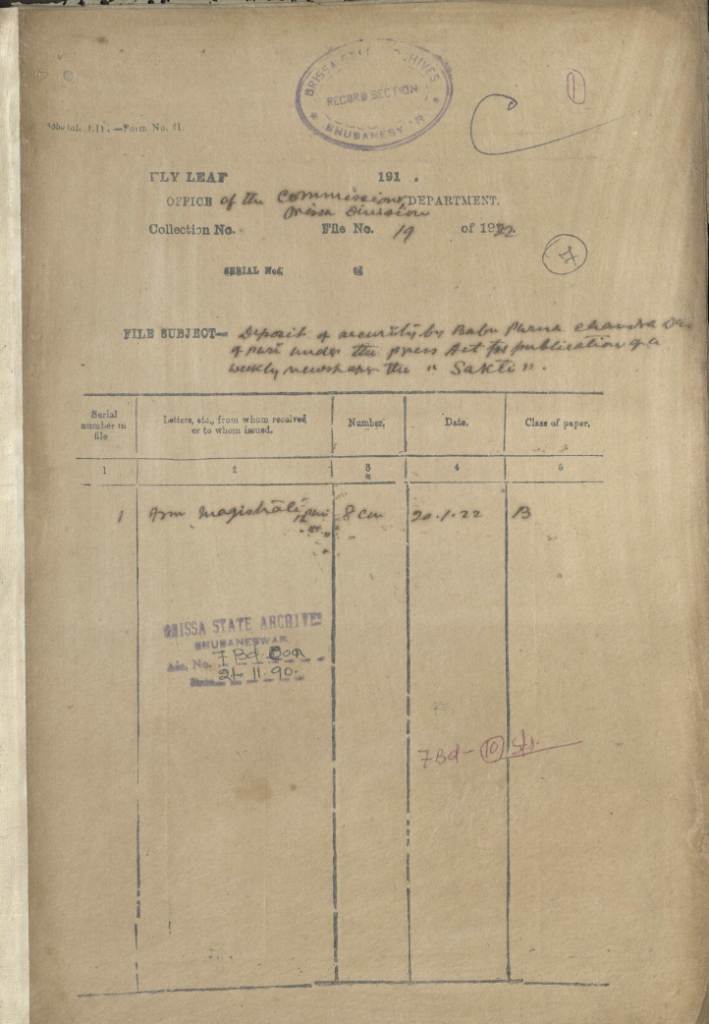 ORISSA STATE ARCHIVES
RECORD SECTION
* BHUBANESWAR *
1
Form No. 41.
FLY LEAF 191 .
OFFICE of the Commissioner DEPARTMENT.
Orissa Division
Collection No. File No. 19 of 1922
SERIAL Nos.
FILE SUBJECT— Deposit of security by Babu Purna Chandra
of Puri under the press Act for publication of a
weekly newspaper the "Sakti".
Serial number in file
Letters, etc., from whom received or to whom issued.
Number.
Date.
Class of paper.
1 2 3 4 5
1 From Magistrate Puri 8 Con 20.1.22 B
ORISSA STATE ARCHIVES
BHUBANESWAR
Acc. No. 7 Bd Con
Date 21.11.90.
7 Bd - 10